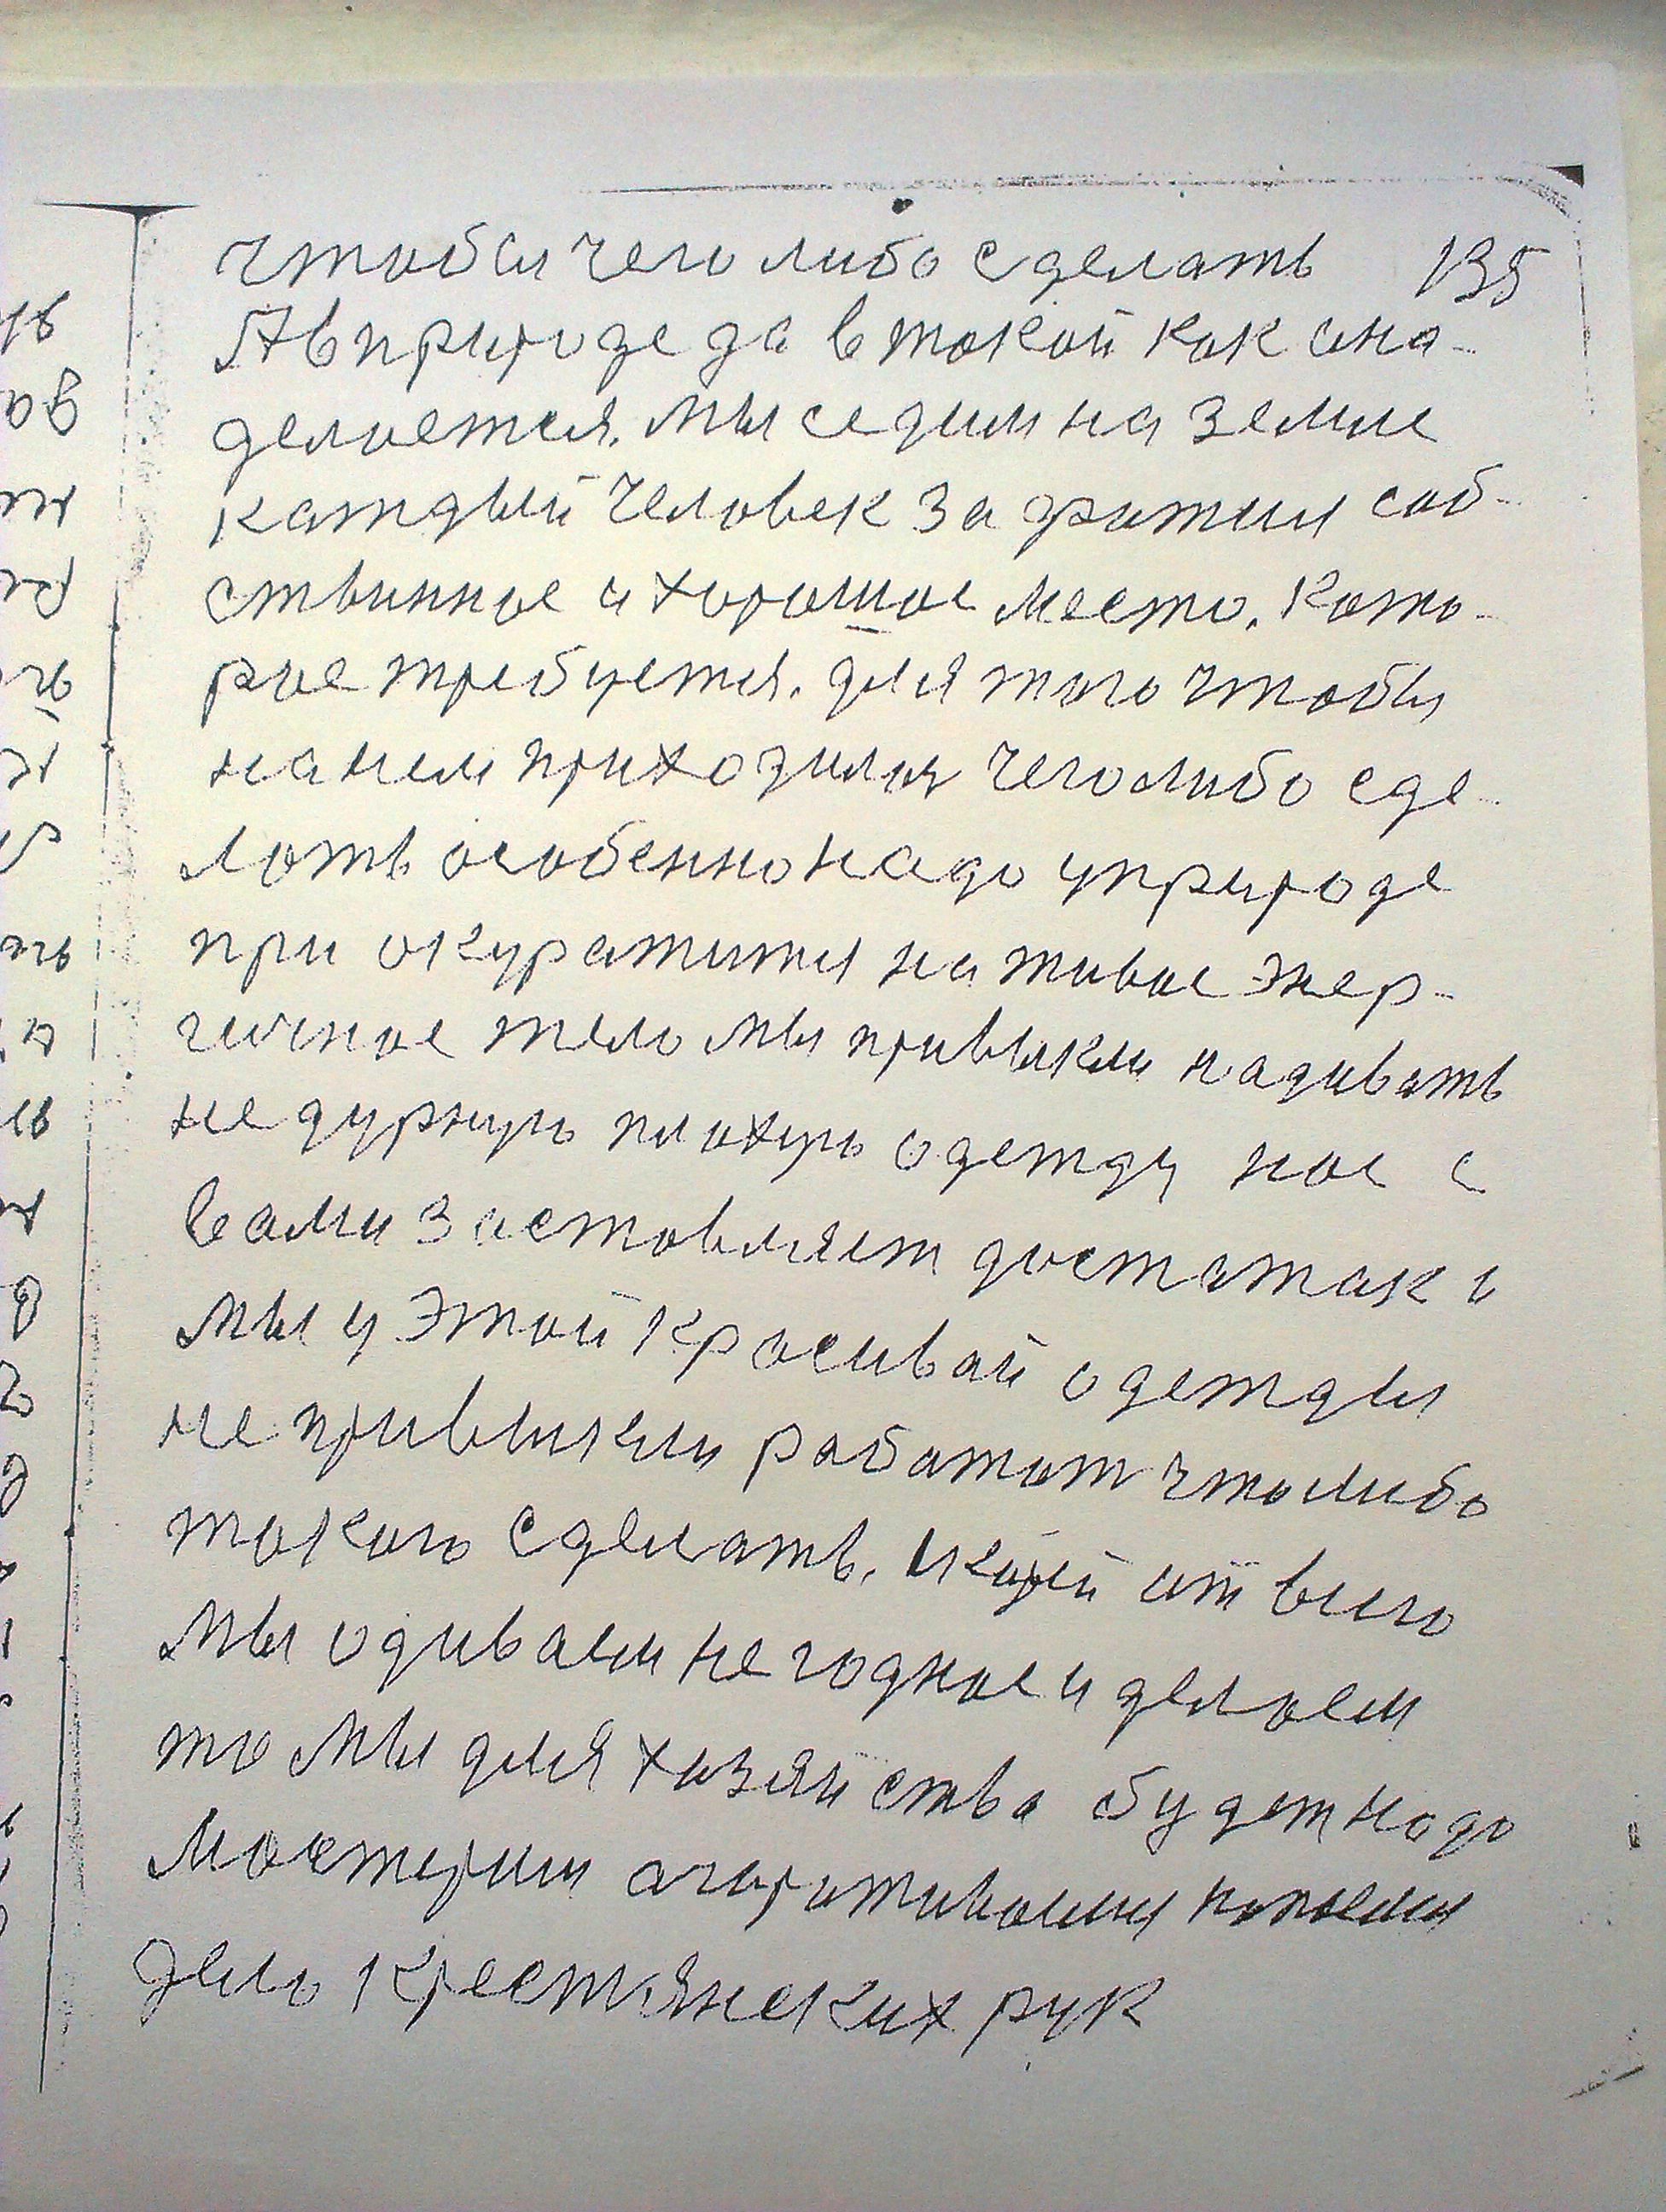 чтобы чего либо сделать 135
А в природе да в такой как она-
делается. мы седим на земле
каждый человек за
ственное и хорошое место. Кото-
рое требуется. для того чтобы
на нем приходился чего либо сде-
лать особенно надо у природе
при на живое энер-
гичное тело мы привыкли надивать
не дурную плохую одежду нас с
вами заставляет достаток и
мы у этой красивай одежды
не привыкли работат что либо
такого сделать. от
мы одиваем не годное и делаем
то мы для хазяйства будет надо
дело крестянских рук